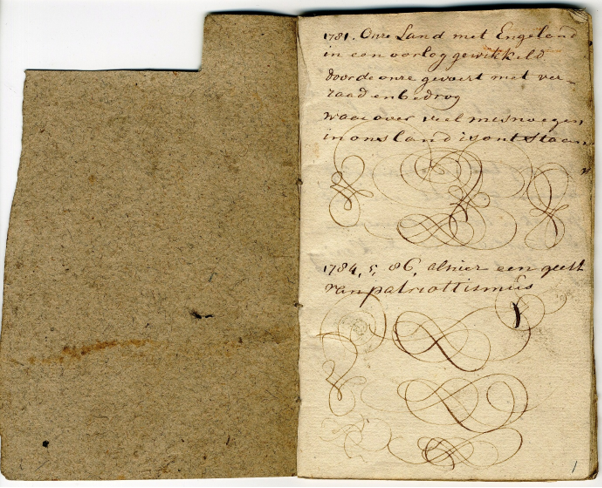 1781. Onse Land met Engeland
in een oorlog gewikkeld
door de onse gevoert met ver-
raad en bedrog
waar over veel misnoegen
in ons land is ontstaan
1784, 5, 86, alhier een geest
van patriottismus
1